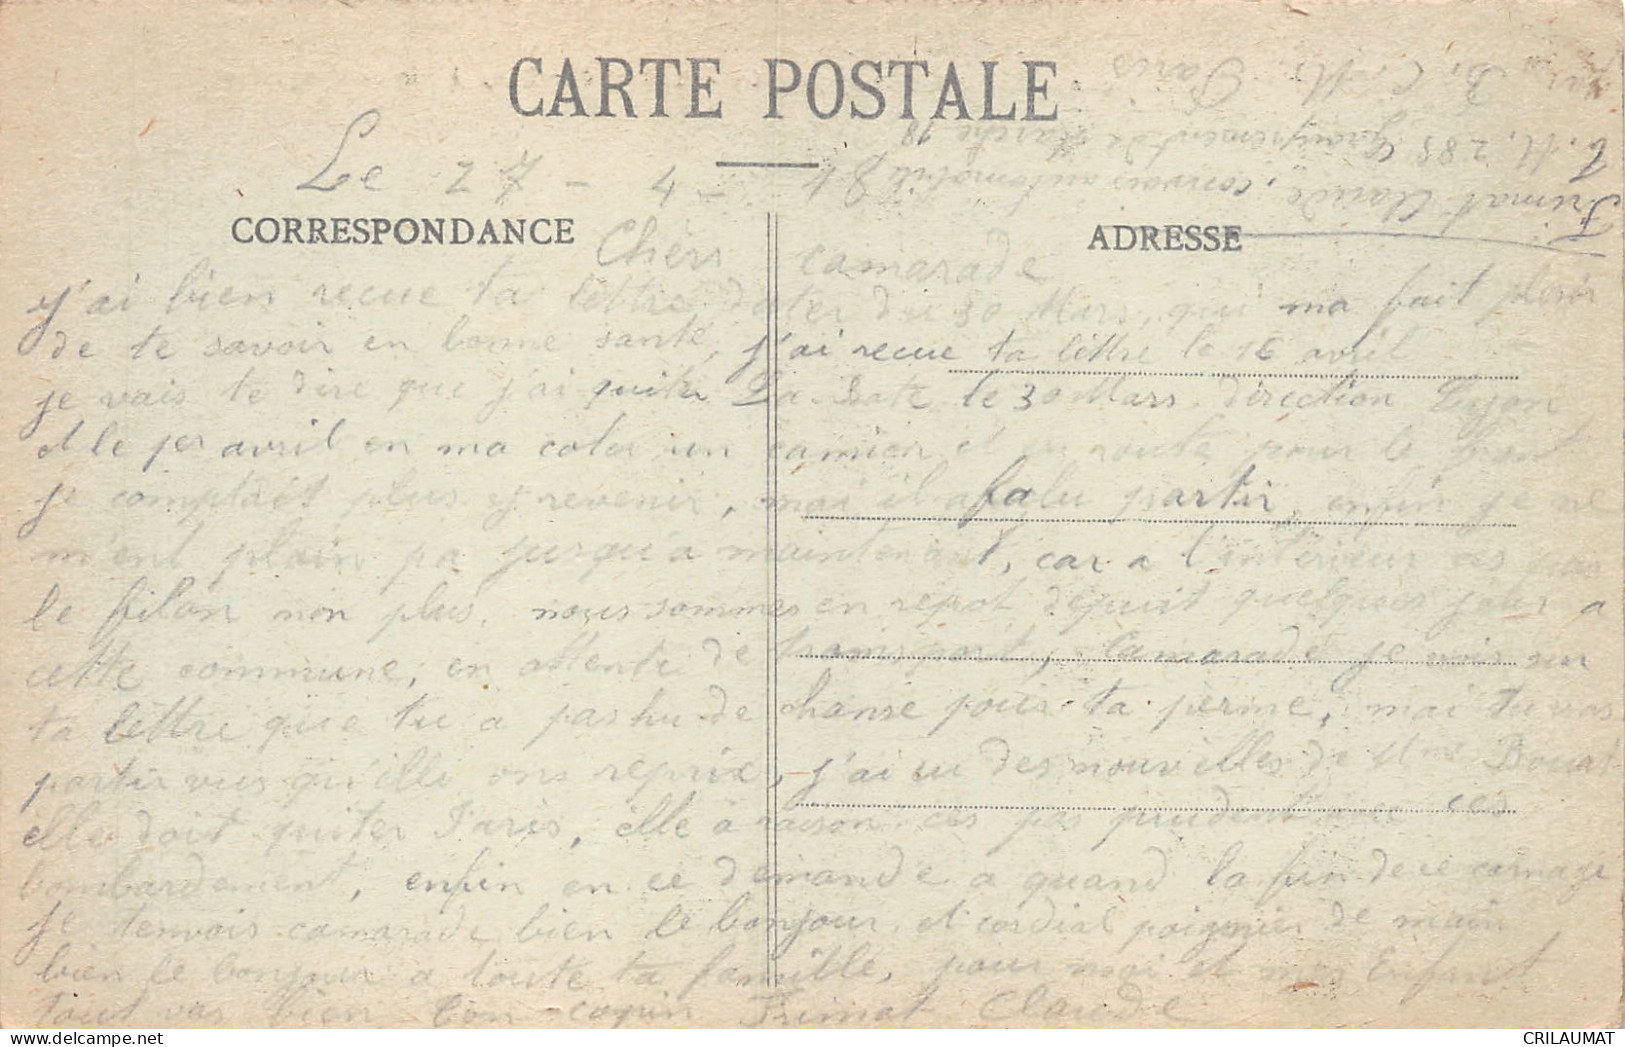 CARTE POSTALE
Frimat Claude, convois automobile
T.M. 283 Groupement de Marche 18
B.C.M. Paris
Le 27 - 4 -
CORRESPONDANCE
ADRESSE
Chers camarade
j'ai bien recue ta lettre dater du 30 Mars, qui ma fait plesir
de te savoir en bonne santé, j'ai recue ta lettre le 16 avril
je vais te dire que j'ai quiter La le 30 Mars direction Lyon
et le 1er avril en ma coler un camion et en route pour le front
je comptait plus y revenir, mai il a falu partir, enfin je ne
m'ent plain pa jusqu'a maintenant, car a l'interieur
le filon non plus, nous sommes en repot depuit quelques jour a
cette commune, en attente de transport, Camarade je vois sur
ta lettre que tu a pas hu de chanse pour ta perme, mai tu vas
partir vus qu'elle ons reprix, j'ai eu des nouvelles de Mme Bouat
elle doit quiter Paris, elle à raison ces pas prudent avec ces
bombardement, enfin on ce demande a quand la fin de ce carnage
je tenvois camarade bien le bonjour, et cordial poignier de main
bien le bonjour a toute ta famille, pour moi et mes Enfant
tout vas bien ton copin Frimat Claude
CRILAUMAT